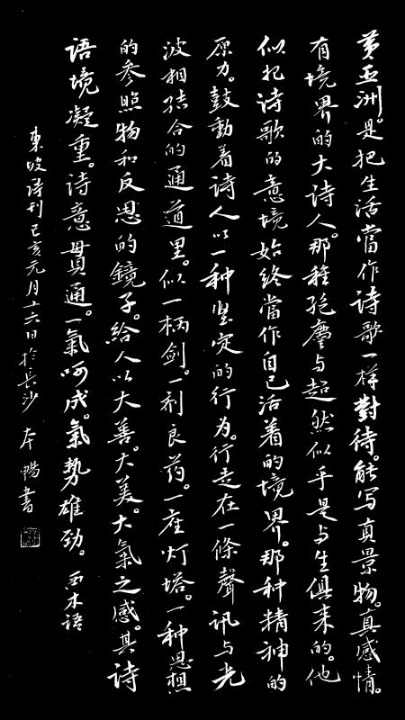 黄亚洲。是把生活當作诗歌一样對待。能写真景物。真感情。
有境界的大诗人。那種绝塵与超然似乎是与生俱来的。他
似把诗歌的意境始终當作自己活着的境界。那种精神的
原力。鼓動着诗人以一种坚定的行为。行走在一條聲讯与光
波相结合的通道里。似一柄劍。一剂良药。一座灯塔。一种思想
的参照物和反思的鏡子。給人以大善。大美。大氣之感。其诗
语境凝重。诗意貫通。一氣呵成。氣勢雄劲。西木语
東坡诗刊己亥元月十六日於長沙 本暘書